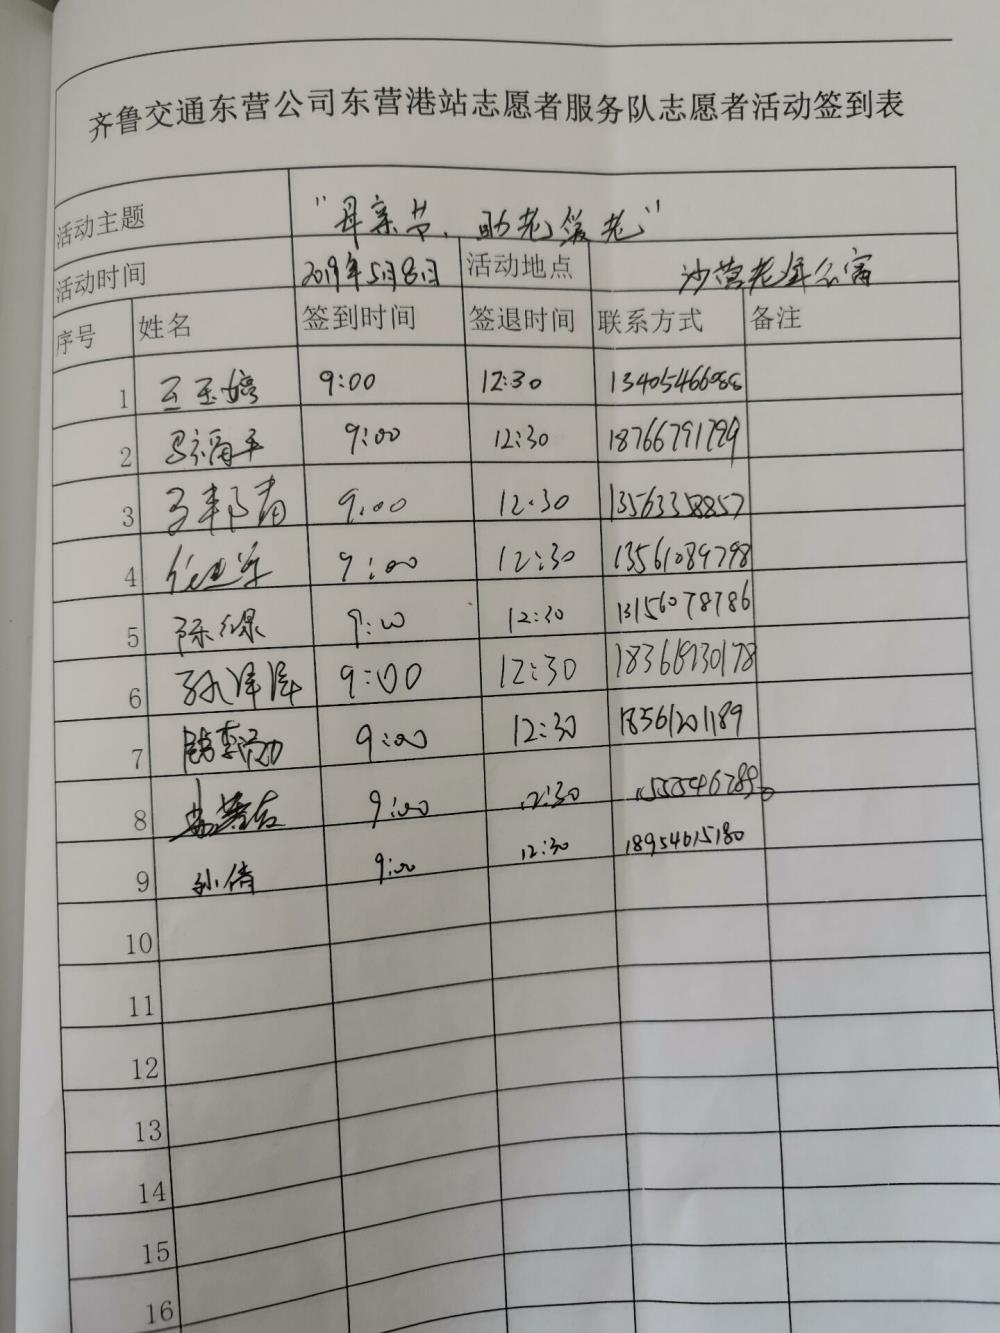 齐鲁交通东营公司东营港站志愿者服务队志愿者活动签到表
活动主题 "母亲节、助老爱老"
活动时间 2019年5月8日 活动地点 沙营老年公寓
序号 姓名 签到时间 签退时间 联系方式 备注
1 王玉婷 9:00 12:30 13405466088
2 马福平 9:00 12:30 18766791799
3 9:00 12:30 13563358857
4 9:00 12:30 13561089798
5 陈绿 9:00 12:30 13156078786
6 孙泽泽 9:00 12:30 18366930178
7 9:00 12:30 18561201189
8 9:00 12:30 15555467890
9 孙倩 9:00 12:30 18954615180
10
11
12
13
14
15
16